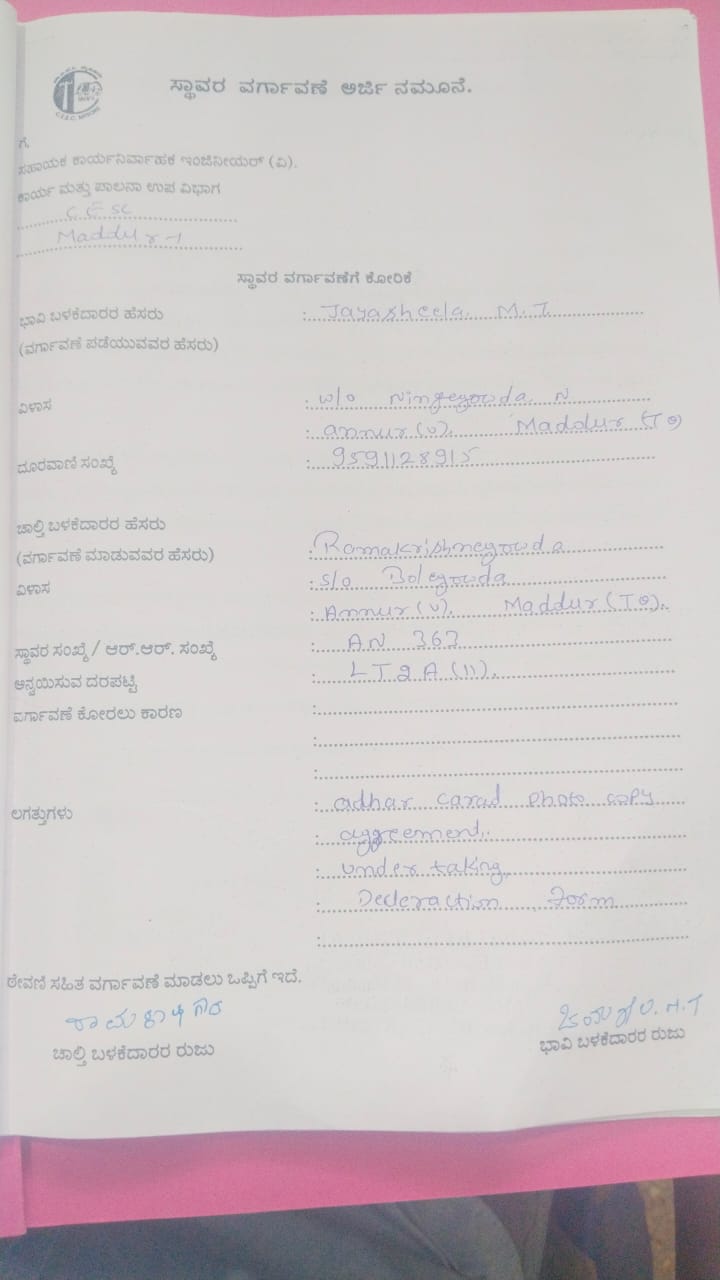 ಸ್ಥಾವರ ವರ್ಗಾವಣೆ ಅರ್ಜಿ ನಮೂನೆ.
ಗೆ,
ಸಹಾಯಕ ಕಾರ್ಯನಿರ್ವಾಹಕ ಇಂಜಿನೀಯರ್ (ವಿ).
ಕಾರ್ಯ ಮತ್ತು ಪಾಲನಾ ಉಪ ವಿಭಾಗ
CESC
Maddur-1
ಸ್ಥಾವರ ವರ್ಗಾವಣೆಗೆ ಕೋರಿಕೆ
ಭಾವಿ ಬಳಕೆದಾರರ ಹೆಸರು : Jayasheela. M.T
(ವರ್ಗಾವಣೆ ಪಡೆಯುವವರ ಹೆಸರು)
ವಿಳಾಸ : w/o Ningegowda. N
: annur(v). Maddur (TQ)
ದೂರವಾಣಿ ಸಂಖ್ಯೆ : 9591128915
ಚಾಲ್ತಿ ಬಳಕೆದಾರರ ಹೆಸರು
(ವರ್ಗಾವಣೆ ಮಾಡುವವರ ಹೆಸರು) : Ramakrishnegowda
ವಿಳಾಸ : S/o Bolegowda
: Annur(v). Maddur(TQ).
ಸ್ಥಾವರ ಸಂಖ್ಯೆ / ಆರ್.ಆರ್. ಸಂಖ್ಯೆ : AN 363
ಅನ್ವಯಿಸುವ ದರಪಟ್ಟಿ : LT2A(11).
ವರ್ಗಾವಣೆ ಕೋರಲು ಕಾರಣ :
:
:
ಲಗತ್ತುಗಳು : adhar carad photo copy
: aggreement.
: under taking
: Decleraction form
:
ಠೇವಣಿ ಸಹಿತ ವರ್ಗಾವಣೆ ಮಾಡಲು ಒಪ್ಪಿಗೆ ಇದೆ.
ಚಾಲ್ತಿ ಬಳಕೆದಾರರ ರುಜು
ಭಾವಿ ಬಳಕೆದಾರರ ರುಜು